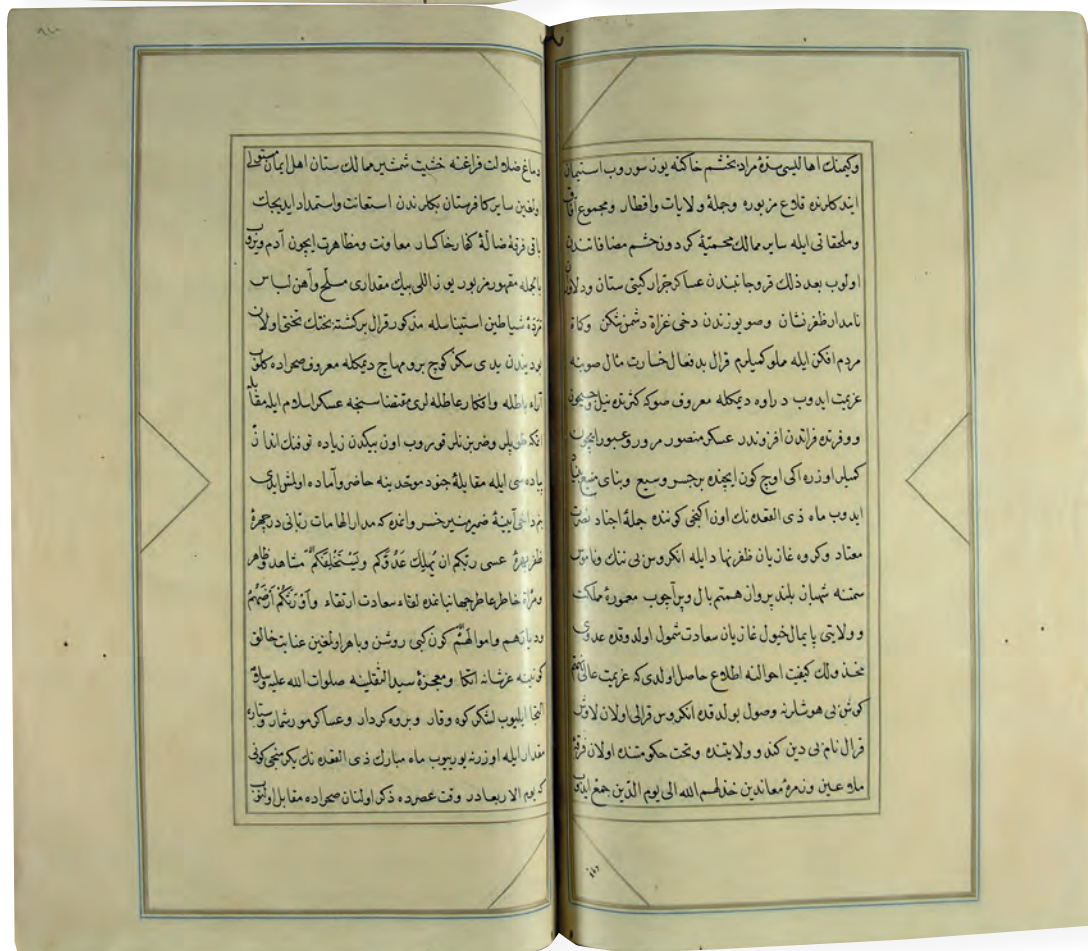 وكیمنك اهالیسی سدۀ مراد بخشم خاكنه یوز سوروب استیمان
ایتدكلرنده قلاع مزبوره وجملۀ ولایات واقطار ومجموع آفاق
وملحقاتی ایله سایر ممالك محمیۀ كردون حشم مضافاتندن
اولوب بعد ذلك قره جانبندن عساكر جرار كیتی ستان ودلاوران
نامدار ظفر نشان وصو یوزندن دخی غزاة دشمن شكن وكماة
مردم افكن ایله مملو كمیلرم قرال بد فعال خسارت مآل صوبنه
عزیمت ایدوب دراوه دیمكله معروف صوكه كثرتده نیل وجیحون
ووفرتده فراتدن افزوندر عسكر منصور مرور وعبور ایچون
كمیلر اوزره اكی اوچ كون ایچنده بر جسر وسیع وبنای منیع بنیاد
ایدوب ماه ذی القعده نك اون اكنجی كوننده جملۀ اجناد نصرت
معتاد وكروه غازیان ظفر نهاد ایله انكروس بی ننك وناموس
سمتنه شهبان بلند پرواز همتم بال وپر آچوب معمورۀ مملكت
وولایتی پایمال خیول غازیان سعادت شمول اولدوقده عدوی
مخذولك كیفیت احوالنه اطلاع حاصل اولدی كه عزیمت عالی نهمتم
كوش بی هوشلرنه وصول بولدقده انكروس قرالی اولان لاوش
قرال نام بی دین كندو ولایتنده وتحت حكومتنده اولان فرقۀ
ملاعین وزمرۀ معاندین خذلهم الله الی یوم الدین جمع ایدوب
دماغ ضلالت فراغنه خشیت شمشیر ممالك ستان اهل ایمان مستولی
اولغین سایر كافرستان بكلرندن استعانت واستمداد ایدیجك
باقی فرقۀ ضالۀ كفار خاكسار معاونت ومظاهرت ایچون آدم ویروب
بالجمله مقهور مزبور یوز اللی بیك مقداری مسلح وآهن لباس
مردۀ شیاطین استیناسله مذكور قرال بركشته بختك تختی اولان
بودیندن یدی سكز كوچ برو مهاج دیمكله معروف صحراده كلوب
آراء باطله وافكار عاطله لری مقتضاسنجه عسكر اسلام ایله مقابله
طوپلر وضربزنلر قوروب اون بیكدن زیاده توفنك انداز
پیاده سی ایله مقابلۀ جنود موحدینه حاضر وآماده اولمش ایدی
بنم دخی آیینۀ ضمیر منیر خسروانمده كه مدار الهامات ربانی در چهرۀ
ظفر بهرۀ عسی ربكم ان یهلك عدوكم ویستخلفكم مشاهد وظاهر
ومرآة خاطر عاطر جهانبانمده لقاء سعادت ارتقاء واورثكم ارضهم
ودیارهم واموالهم كون كبی روشن وباهر اولغین عنایت خالق
كونینه عز شانه اتكا ومعجزۀ سید الثقلینه صلوات الله علیه وسلامه
التجا ایلیوب لشكر كوه وقار وعساكر مور شمار وستاره
مقدار ایله اوزرنه یورییوب ماه مبارك ذی القعده نك یكرمنجی كونی
كه یوم الاربعادر وقت عصرده ذكر اولنان صحراده مقابل اولنوب